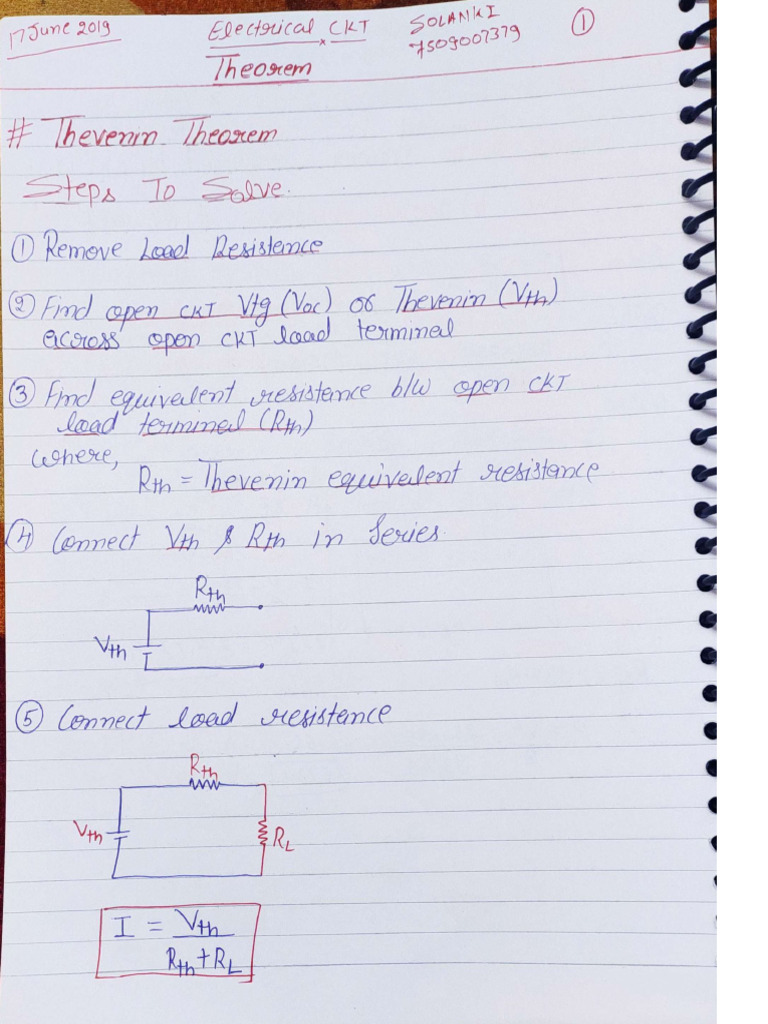 17 June 2019
Electrical CKT
SOLANKI
7509007379
1
Theorem
# Thevenin Theorem
Steps To Solve.
① Remove Load Resistence
② Find open CKT Vtg (Voc) or Thevenin (Vth)
across open CKT load terminal
③ Find equivalent resistance b/w open CKT
load terminal (Rth)
where,
Rth = Thevenin equivalent resistance
④ Connect Vth & Rth in Series.
Rth
Vth
⑤ Connect load resistance
Rth
Vth
RL
I = Vth
Rth + RL